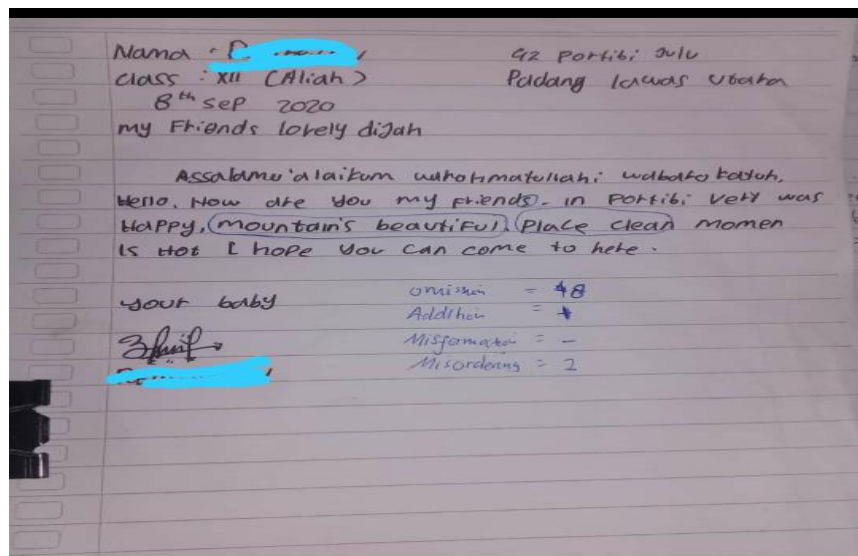 Nama :
class : XII (Aliah)
8th sep 2020
my Friends lovely diJah
G2 Portibi Julu
Padang lawas Utara
Assalamu'alaikum warohmatullahi wabarokatuh,
Hello, How are you my friends. in Portibi very was
Happy, mountain's beautiful. Place clean momen
is Hot I hope you can come to here.
your baby
omission = 48
Addition =
Misformation = -
Misordering = 2